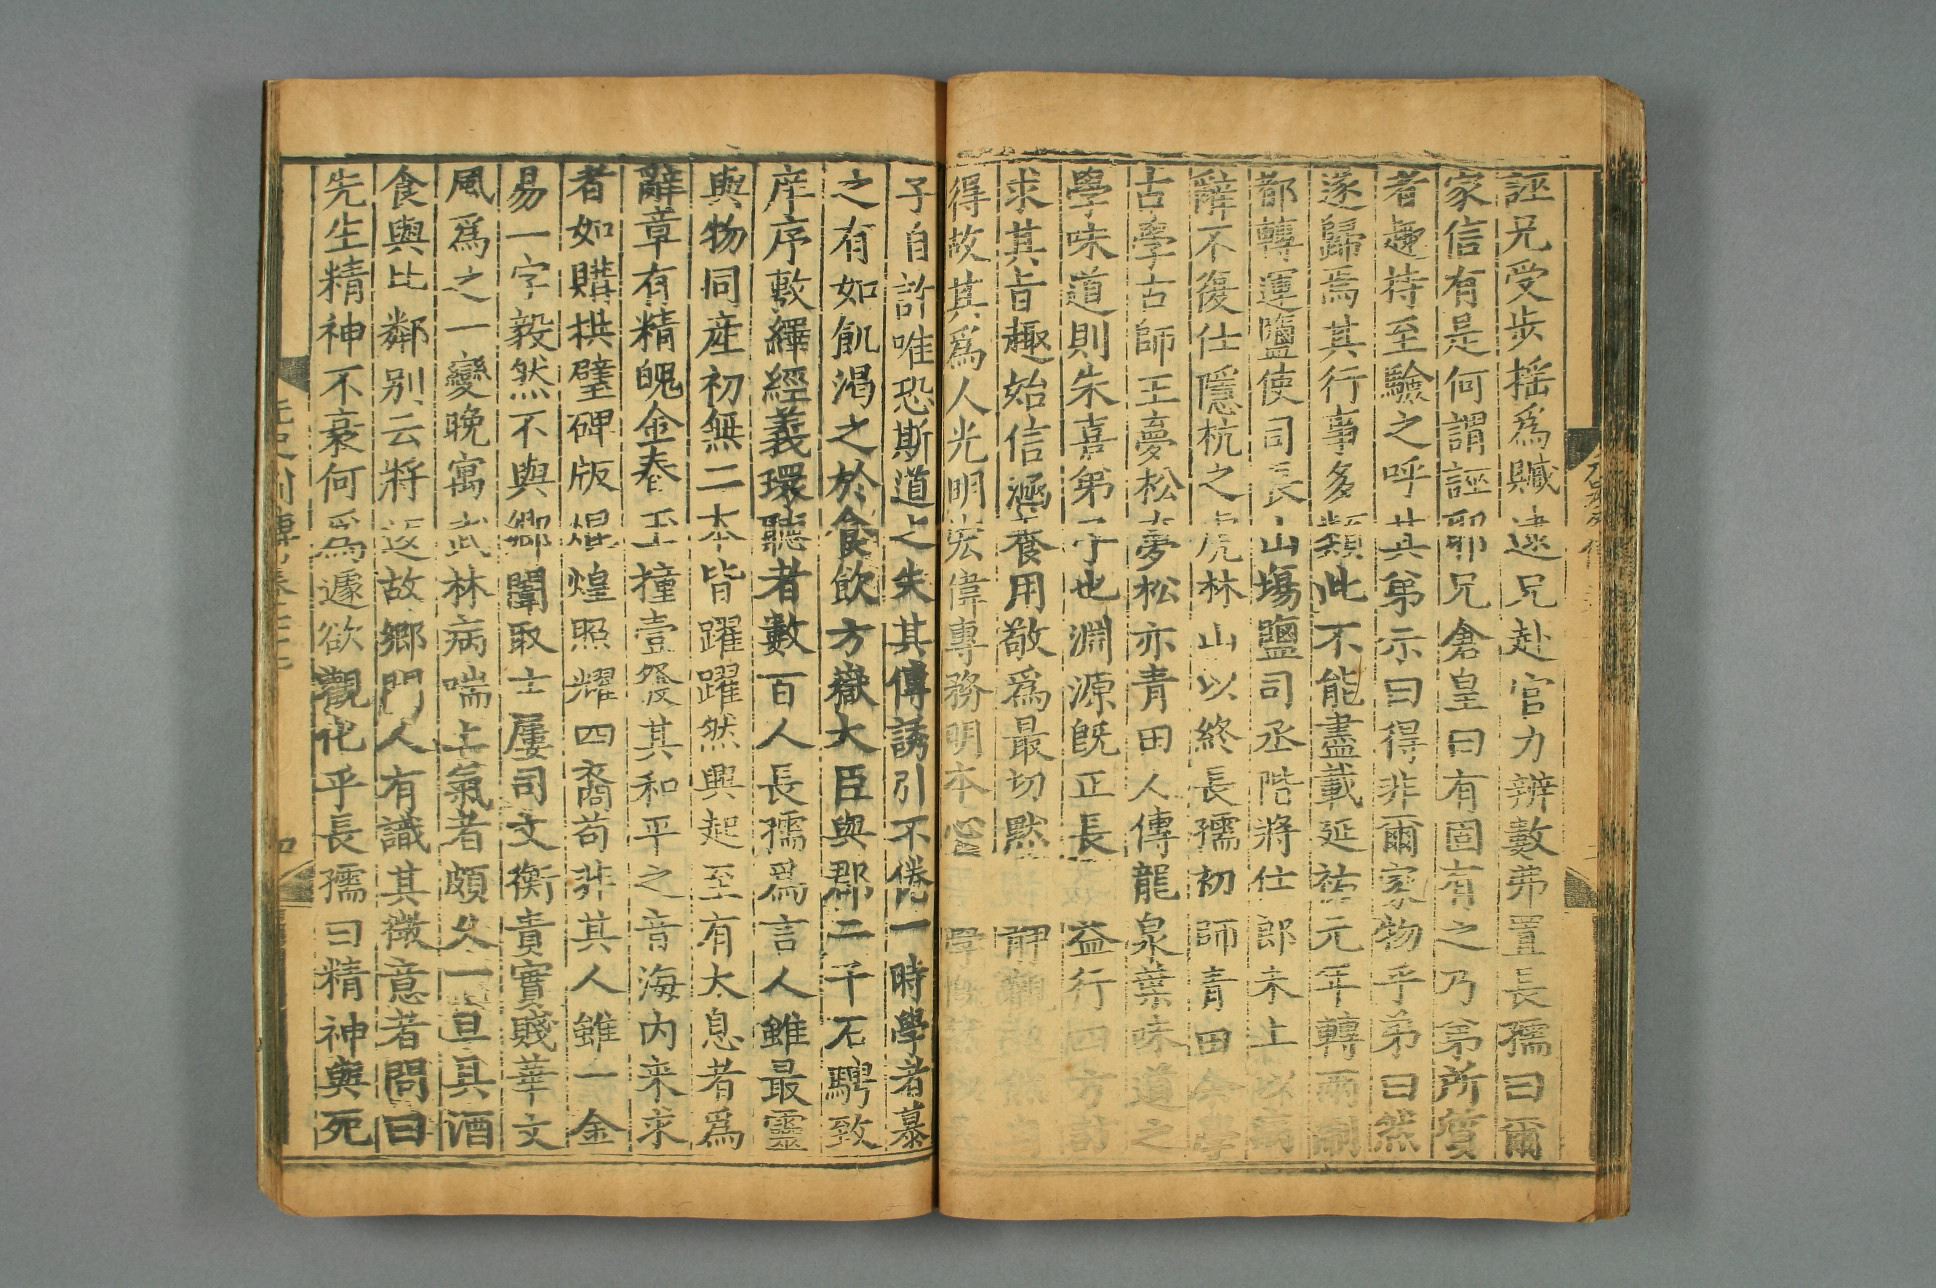 誣兄受步揺爲贜逮兄赴官力辨數弗置長孺曰爾
家信有是何謂誣耶兄倉皇曰有固有之乃弟所質
者趣持至驗之呼其弟示曰得非爾家物乎弟曰然
遂歸焉其行事多類此不能盡載延祐元年轉兩浙
都轉運鹽使司長山塲鹽司丞階將仕郎未上以病
辭不復仕隱杭之虎林山以終長孺初師青田余學
古學古師王夢松夢松亦青田人傳龍泉葉味道之
學味道則朱熹弟子也淵源旣正長孺益行四方訪
求其旨趣始信涵養用敬爲最切黙靜觀超然自
得故其爲人光明宏偉專務明本心學慨然以孟
子自許唯恐斯道之失其傳誘引不倦一時學者慕
之有如飢渴之於食飲方嶽大臣與郡二千石騁致
庠序敷繹經義環聽者數百人長孺爲言人雖最靈
與物同産初無二本皆躍躍然興起至有太息者爲
辭章有精魄金舂玉撞壹發其和平之音海内来求
者如購拱璧碑版焜煌照耀四裔苟非其人雖一金
易一字毅然不與鄉闈取士屢司文衡貴實賤華文
風爲之一變晚寓武林病喘上氣者頗久一旦具酒
食與比鄰别云將返故鄉門人有識其微意者問曰
先生精神不衰何爲遽欲觀化乎長孺曰精神與死
元史列傳卷七十七
四